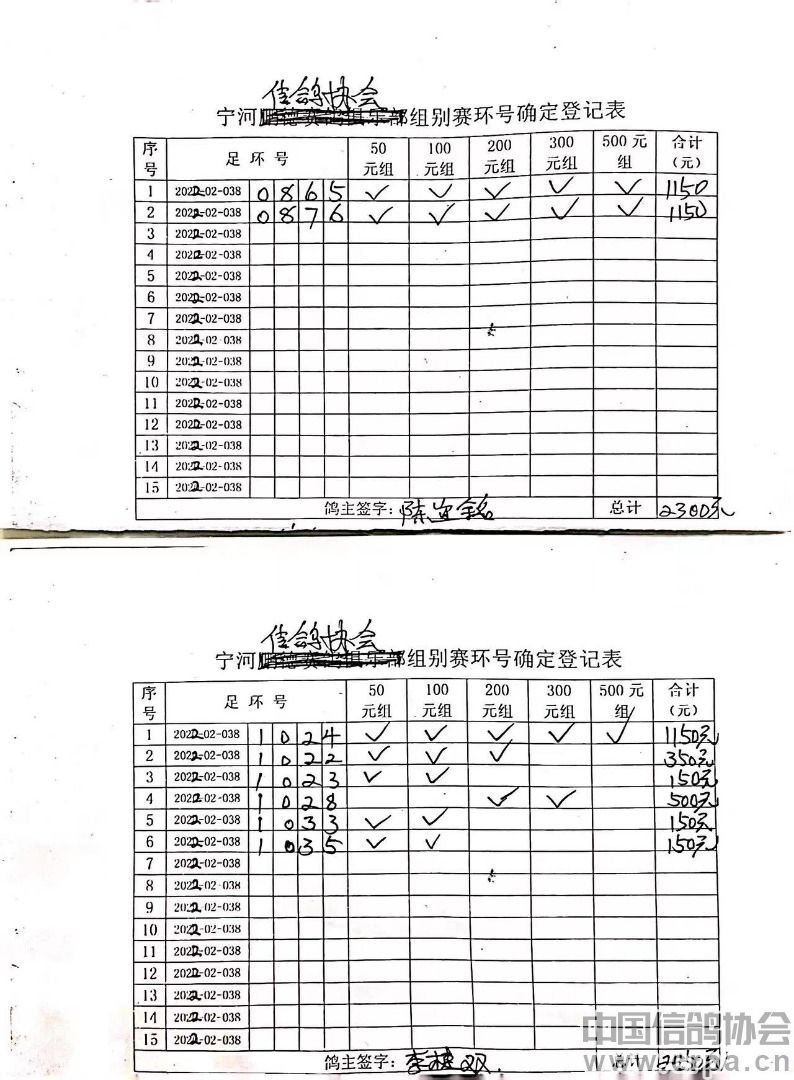 佳鸽协会
宁河鹏德赛鸽俱乐部组别赛环号确定登记表
序号 足环号 50元组 100元组 200元组 300元组 500元组 合计(元)
1 2022-02-038 0865 ✓ ✓ ✓ ✓ ✓ 1150
2 2022-02-038 0876 ✓ ✓ ✓ ✓ ✓ 1150
3 2022-02-038
4 2022-02-038
5 2022-02-038
6 2022-02-038
7 2022-02-038
8 2022-02-038
9 2022-02-038
10 2022-02-038
11 2022-02-038
12 2022-02-038
13 2022-02-038
14 2022-02-038
15 2022-02-038
鸽主签字:陈 总计 2300元
佳鸽协会
宁河鹏德赛鸽俱乐部组别赛环号确定登记表
序号 足环号 50元组 100元组 200元组 300元组 500元组 合计(元)
1 2022-02-038 1024 ✓ ✓ ✓ ✓ ✓ 1150元
2 2022-02-038 1022 ✓ ✓ ✓ 350元
3 2022-02-038 1023 ✓ ✓ 150元
4 2022-02-038 1028 ✓ ✓ 500元
5 2022-02-038 1033 ✓ ✓ 150元
6 2022-02-038 1035 ✓ ✓ 150元
7 2022-02-038
8 2022-02-038
9 2022-02-038
10 2022-02-038
11 2022-02-038
12 2022-02-038
13 2022-02-038
14 2022-02-038
15 2022-02-038
鸽主签字:李 双 总计
中国信鸽协会
www.crpa.cn